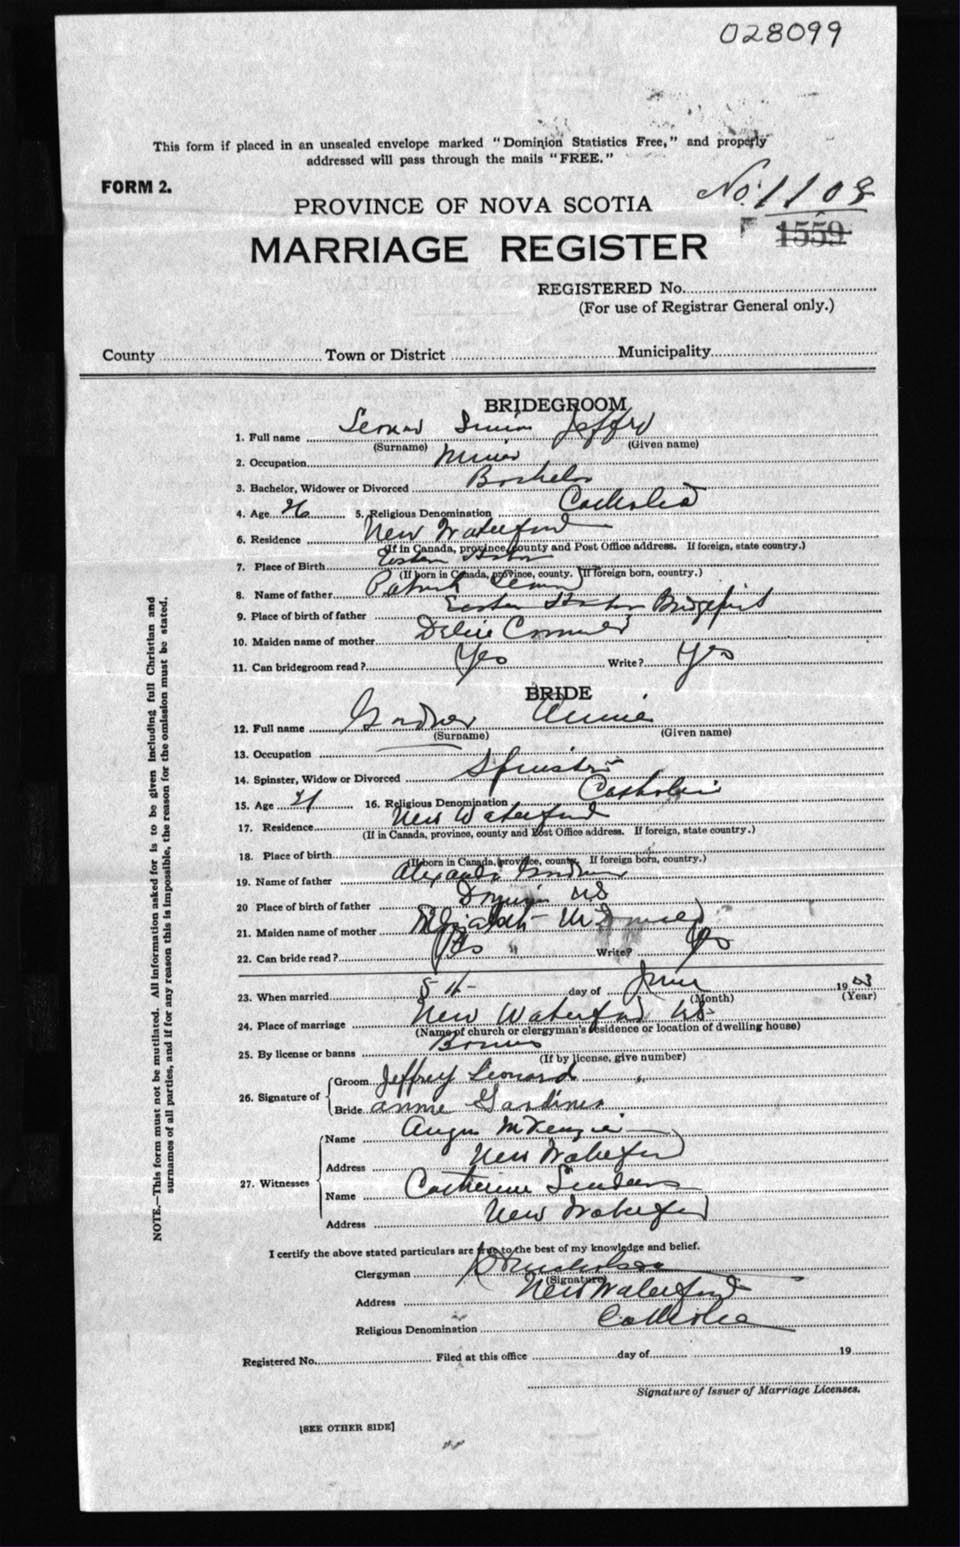 028099
This form if placed in an unsealed envelope marked "Dominion Statistics Free," and properly
addressed will pass through the mails "FREE."
FORM 2.
No. 1108
PROVINCE OF NOVA SCOTIA
1559
MARRIAGE REGISTER
REGISTERED No.
(For use of Registrar General only.)
County Town or District Municipality
BRIDEGROOM
1. Full name Jeffry
(Surname) (Given name)
2. Occupation Miner
3. Bachelor, Widower or Divorced Bachelor
4. Age 26 5. Religious Denomination Catholic
6. Residence New Waterford
(If in Canada, province, county and Post Office address. If foreign, state country.)
7. Place of Birth
(If born in Canada, province, county. If foreign born, country.)
8. Name of father Patrick
9. Place of birth of father
10. Maiden name of mother
11. Can bridegroom read? Yes Write? Yes
BRIDE
12. Full name Annie
(Surname) (Given name)
13. Occupation
14. Spinster, Widow or Divorced Spinster
15. Age 21 16. Religious Denomination Catholic
17. Residence New Waterford
(If in Canada, province, county and Post Office address. If foreign, state country.)
18. Place of birth
(If born in Canada, province, county. If foreign born, country.)
19. Name of father
20 Place of birth of father NS
21. Maiden name of mother
22. Can bride read? Yes Write? Yes
23. When married day of June 19
(Month) (Year)
24. Place of marriage New Waterford NS
(Name of church or clergyman's residence or location of dwelling house)
25. By license or banns Banns
(If by license, give number)
26. Signature of Groom Jeffrey Leonard
Bride Annie Gardiner
27. Witnesses Name Angus McKenzie
Address New Waterford
Name Catherine
Address New Waterford
I certify the above stated particulars are true to the best of my knowledge and belief.
Clergyman
(Signature)
Address New Waterford
Religious Denomination Catholic
Registered No. Filed at this office day of 19
Signature of Issuer of Marriage Licenses.
[SEE OTHER SIDE]
NOTE.—This form must not be mutilated. All information asked for is to be given including full Christian and
surnames of all parties, and if for any reason this is impossible, the reason for the omission must be stated.